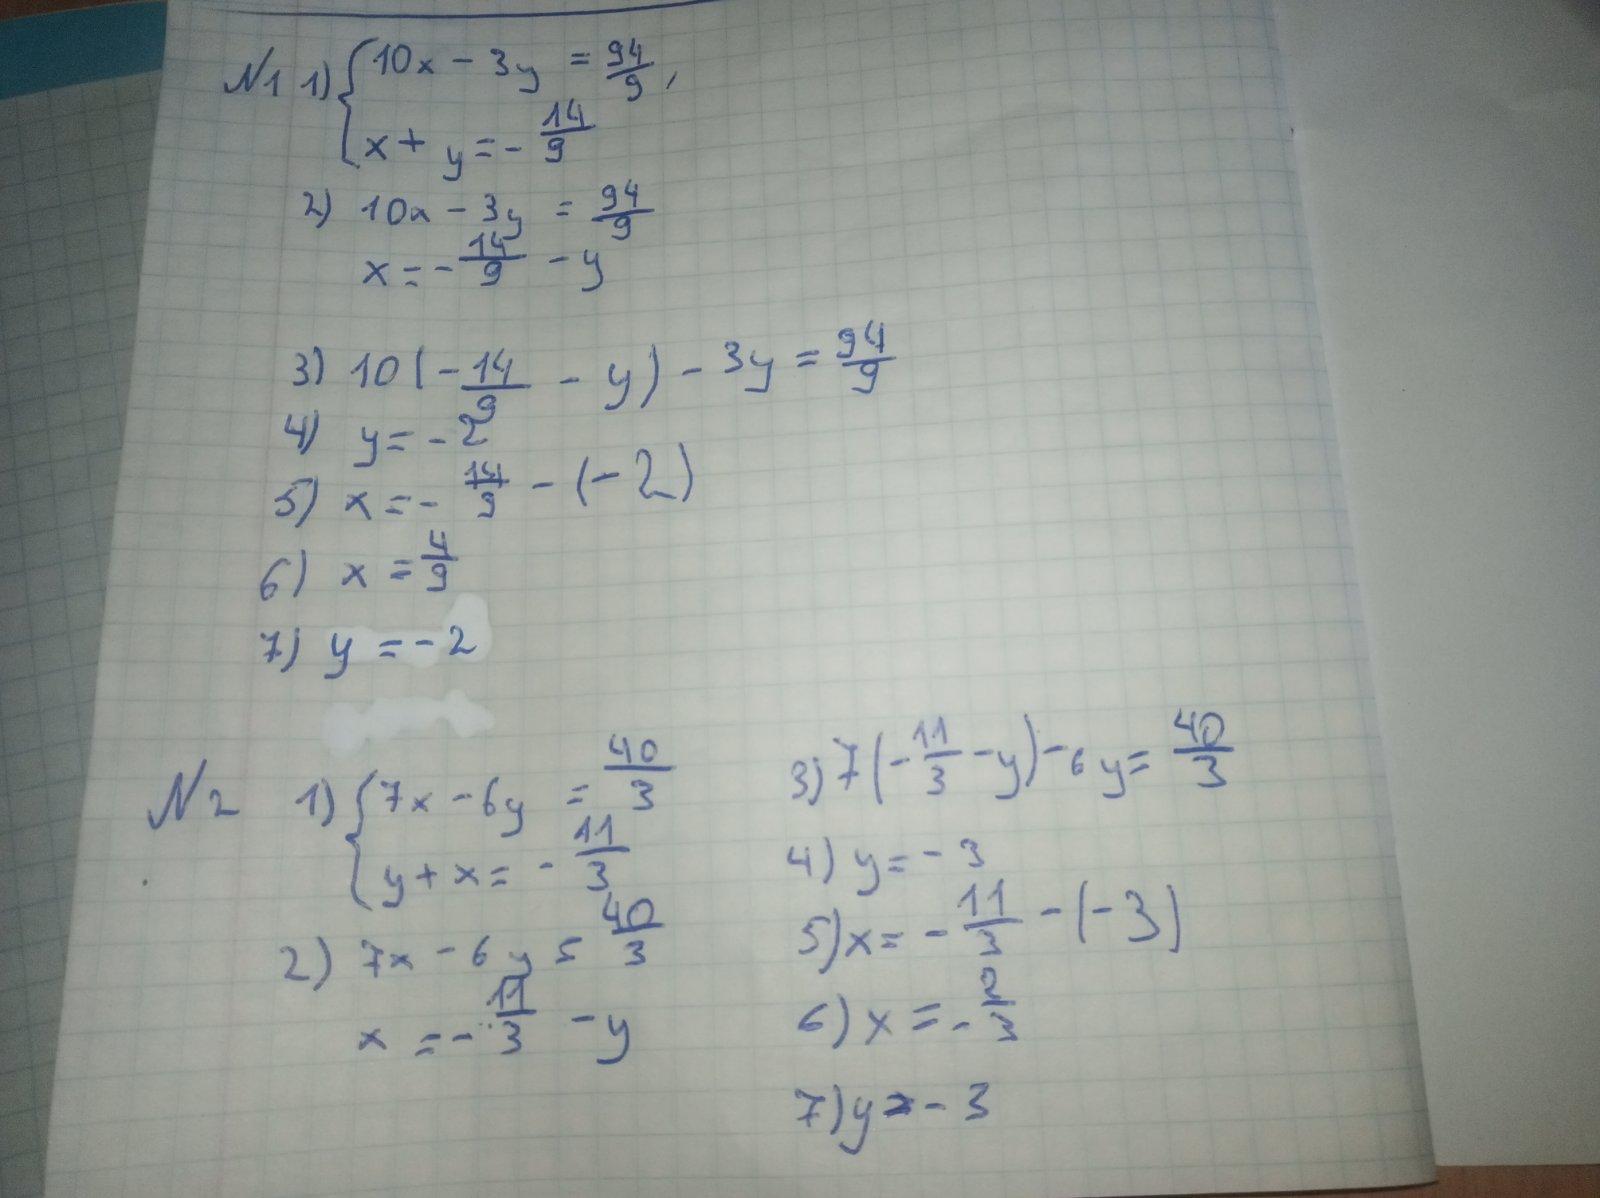 N1 1) { 10x - 3y = 94/9 ,
x + y = - 14/9
2) 10x - 3y = 94/9
x = - 14/9 - y
3) 10(- 14/9 - y) - 3y = 94/9
4) y = - 2
5) x = - 14/9 - (-2)
6) x = 4/9
7) y = - 2
N2 1) { 7x - 6y = 40/3
y + x = - 11/3
2) 7x - 6y = 40/3
x = - 11/3 - y
3) 7(- 11/3 - y) - 6y = 40/3
4) y = - 3
5) x = - 11/3 - (-3)
6) x = - 2/3
7) y = - 3